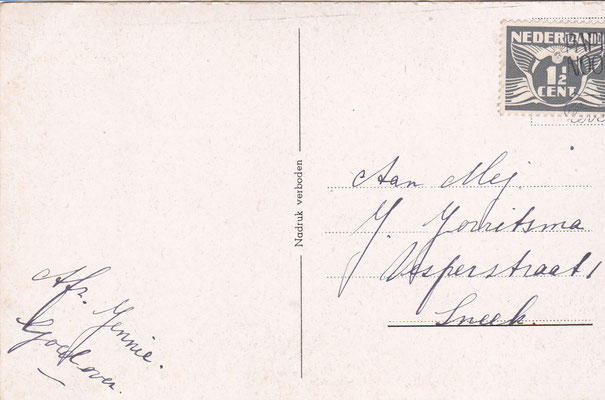 NEDERLAND
1½
CENT
Nadruk verboden
Aan Mej.
J. Jorritsma
Vesperstraat 1
Sneek.
Afz. Jennie.